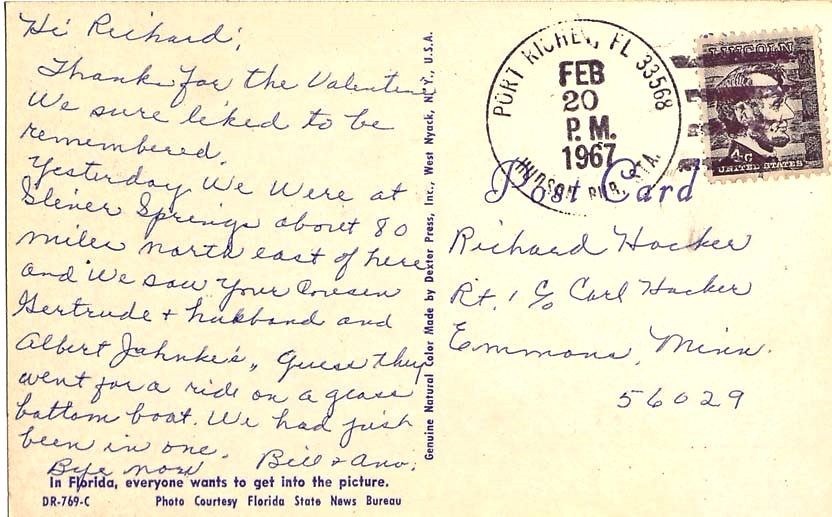 Hi Richard;
Thanks for the Valentine
We sure liked to be
remembered.
Yesterday We Were at
Slever Springs about 80
miles north east of here
and We saw your Cousen
Gertrude + husband and
Albert Jahnke's,, Guess they
went for a ride on a glass
bottom boat. We had just
been in one.
Bye now Bill + Ann.
In Florida, everyone wants to get into the picture.
DR-769-C Photo Courtesy Florida State News Bureau
Genuine Natural Color Made by Dexter Press, Inc., West Nyack, N. Y., U.S.A.
PORT RICHEY, FL 33568
FEB
20
P. M.
1967
HUDSON RUR. STA.
LINCOLN
4c
UNITED STATES
Post Card
Richard Hacker
Rt. 1 c/o Carl Hacker
Emmons, Minn.
56029